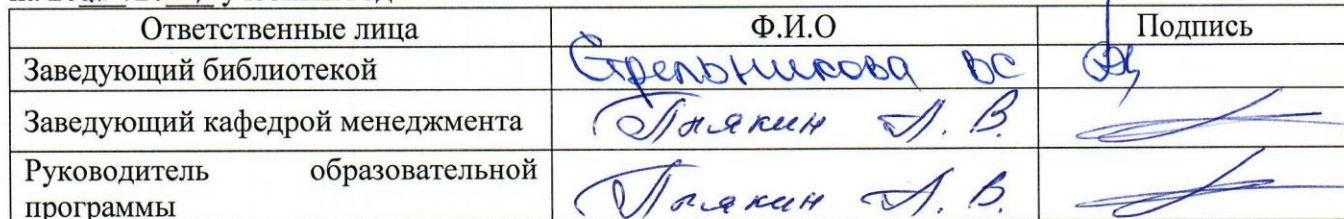 Ответственные лица Ф.И.О Подпись
Заведующий библиотекой Стрельникова ВС
Заведующий кафедрой менеджмента А. В.
Руководитель образовательной
программы А. В.